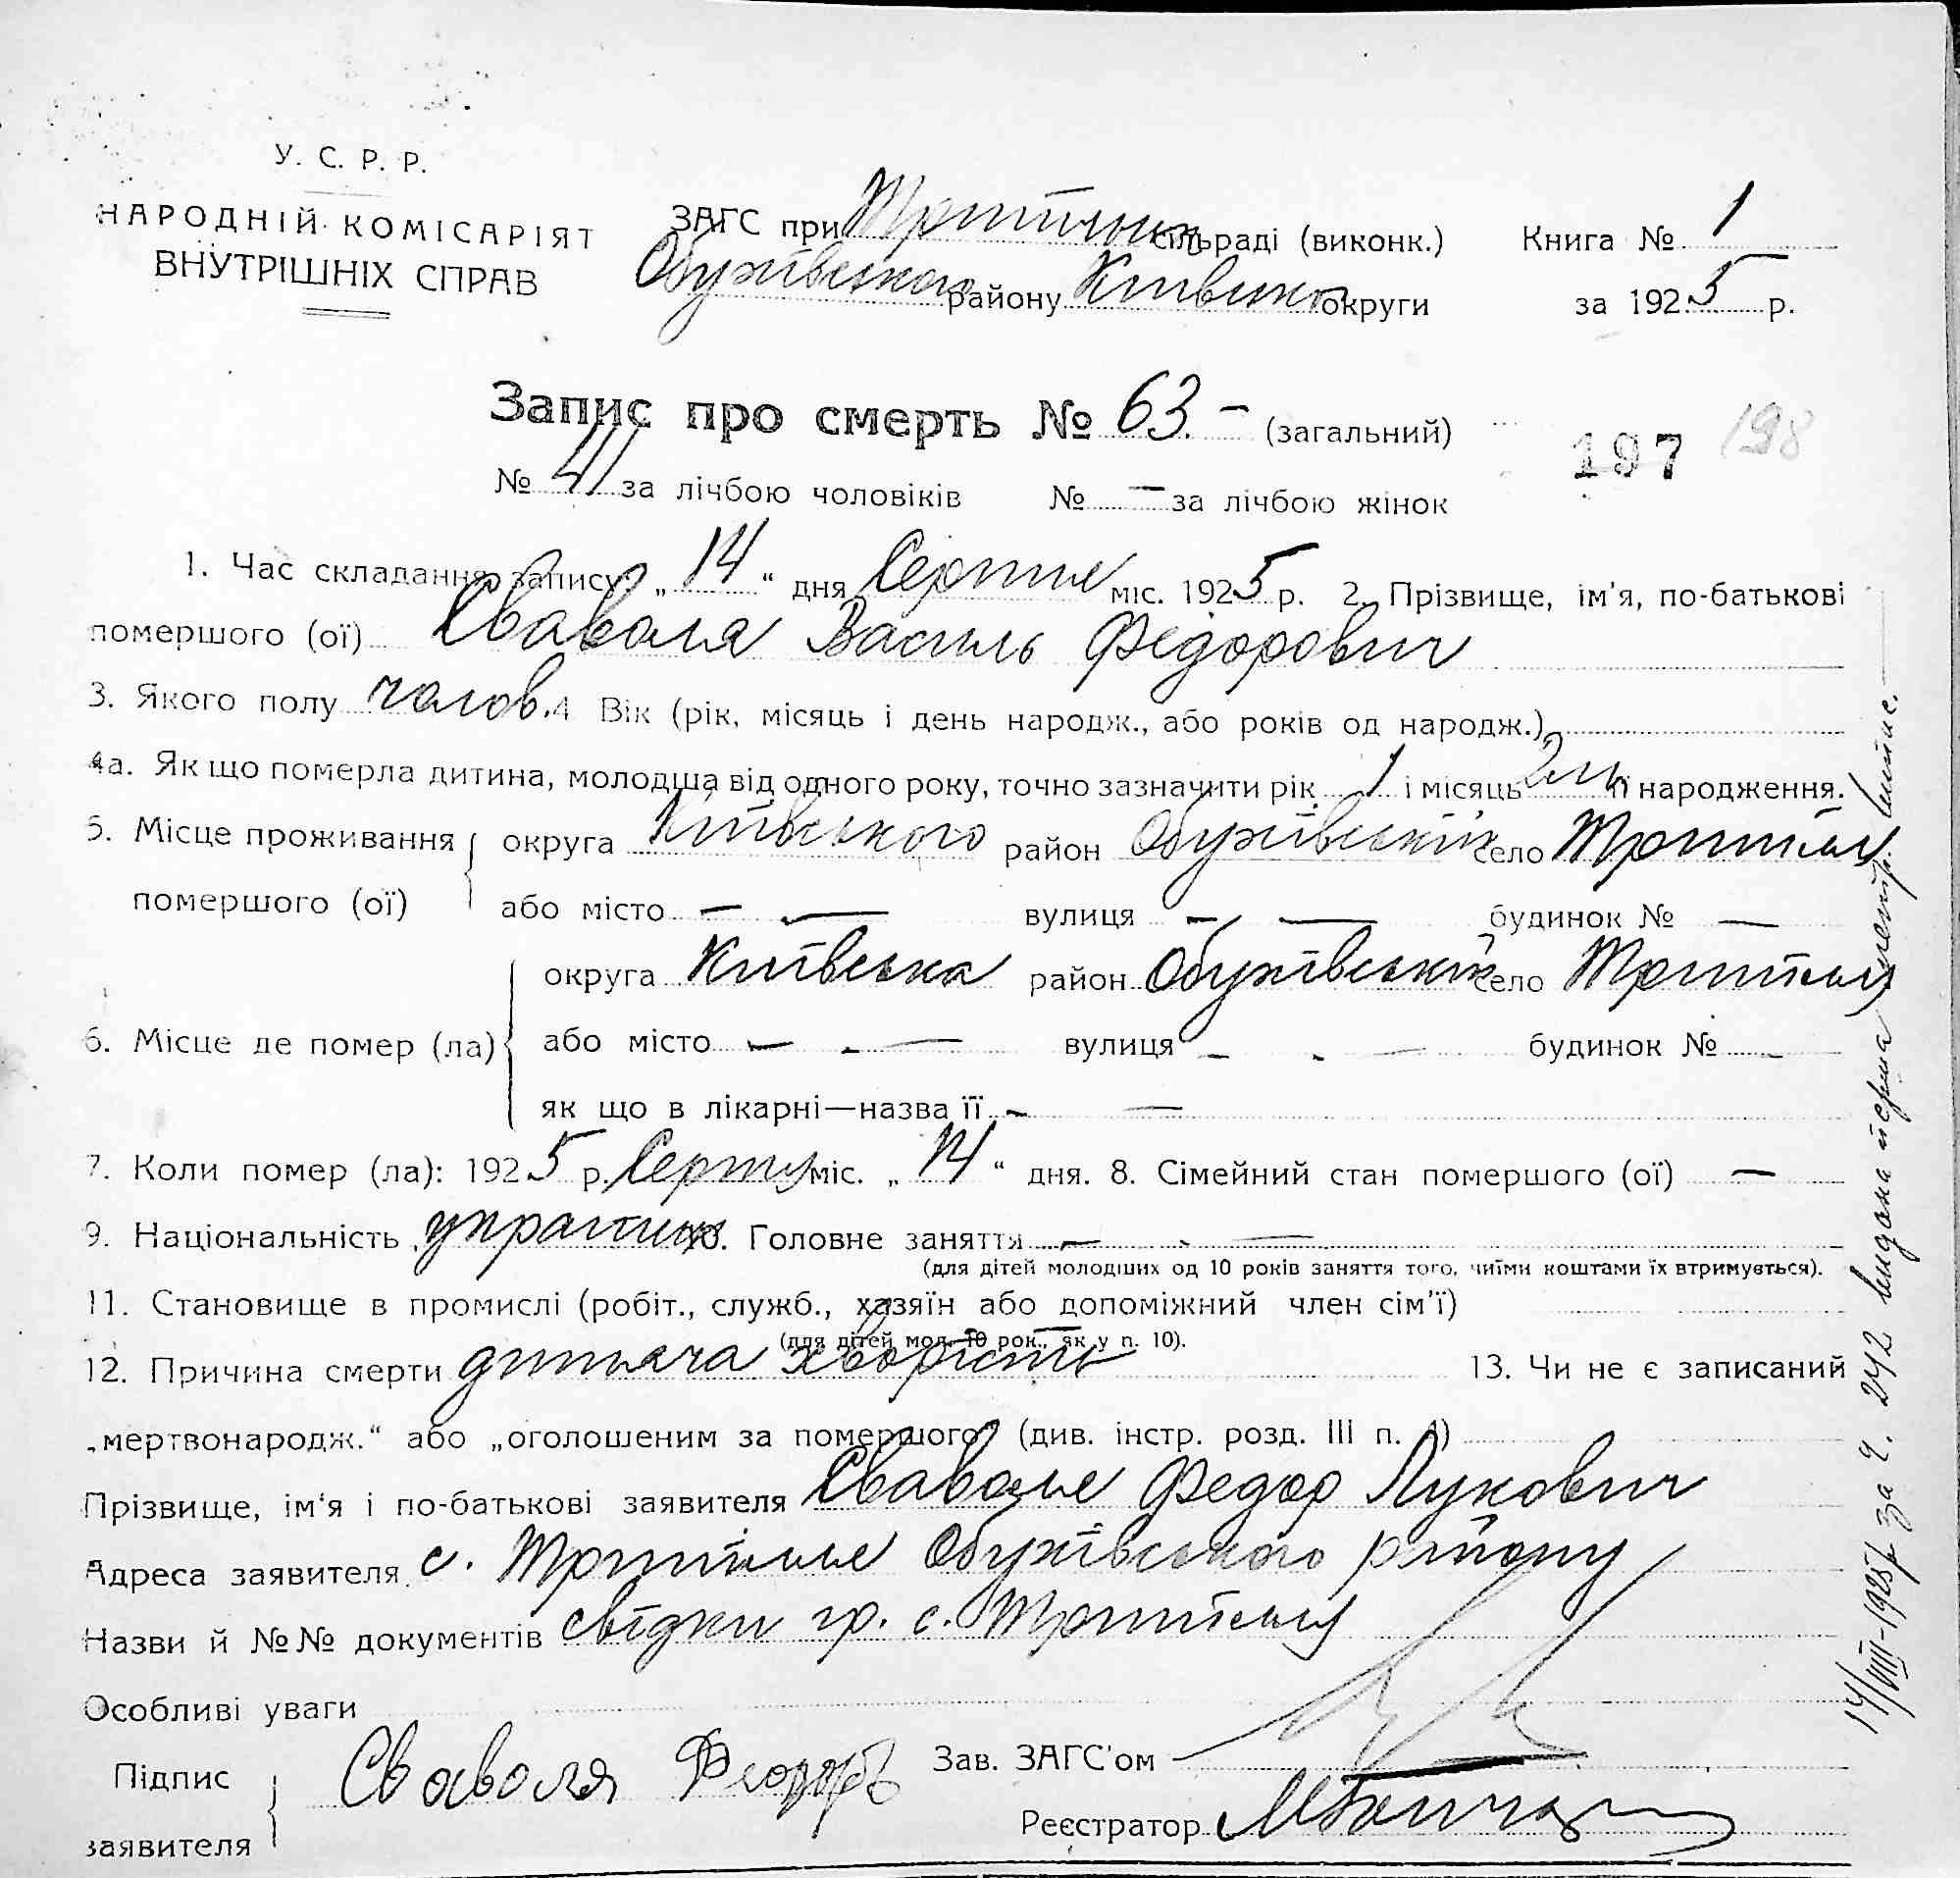 У. С. Р. Р.
НАРОДНІЙ КОМІСАРІЯТ
ВНУТРІШНІХ СПРАВ
ЗАГС при сільраді (виконк.)
Обухівського району Київсько округи
Книга № 1
за 1925 р.
Запис про смерть № 63. – (загальний)
197 198
№ 41 за лічбою чоловіків № — за лічбою жінок
1. Час складання запису „14“ дня Серпня міс. 1925 р. 2. Прізвище, ім'я, по-батькові
помершого (ої) Сваволя Василь Федорович
3. Якого полу чолов. 4 Вік (рік, місяць і день народж., або років од народж.)
4а. Як що померла дитина, молодша від одного року, точно зазначити рік 1 і місяць 2 її народження.
5. Місце проживання помершого (ої) округа Київського район Обухівський село Трипілля
або місто — — вулиця — — будинок № —
6. Місце де помер (ла) округа Київська район Обухівський село Трипілля
або місто — - — вулиця — - — будинок № —
як що в лікарні—назва її – —
7. Коли помер (ла): 1925 р. Серпня міс. „14“ дня. 8. Сімейний стан помершого (ої) —
9. Національність українец 10. Головне заняття — - —
(для дітей молодших од 10 років заняття того, чиїми коштами їх втримується).
11. Становище в промислі (робіт., служб., хазяїн або допоміжний член сім'ї)
(для дітей мол. 10 рок., як у п. 10).
12. Причина смерти дитяча хворість 13. Чи не є записаний
„мертвонародж.“ або „оголошеним за помершого“ (див. інстр. розд. III п. 4)
Прізвище, ім'я і по-батькові заявителя Сваволя Федор Лукович
Адреса заявителя с. Трипілля Обухівського району
Назви й №№ документів свідки гр. с. Трипілля
Особливі уваги
Підпис заявителя Сваволя Федоръ
Зав. ЗАГС'ом
Реєстратор
14/VIII-1925 р за ч. 242 видана перша метр. випис.